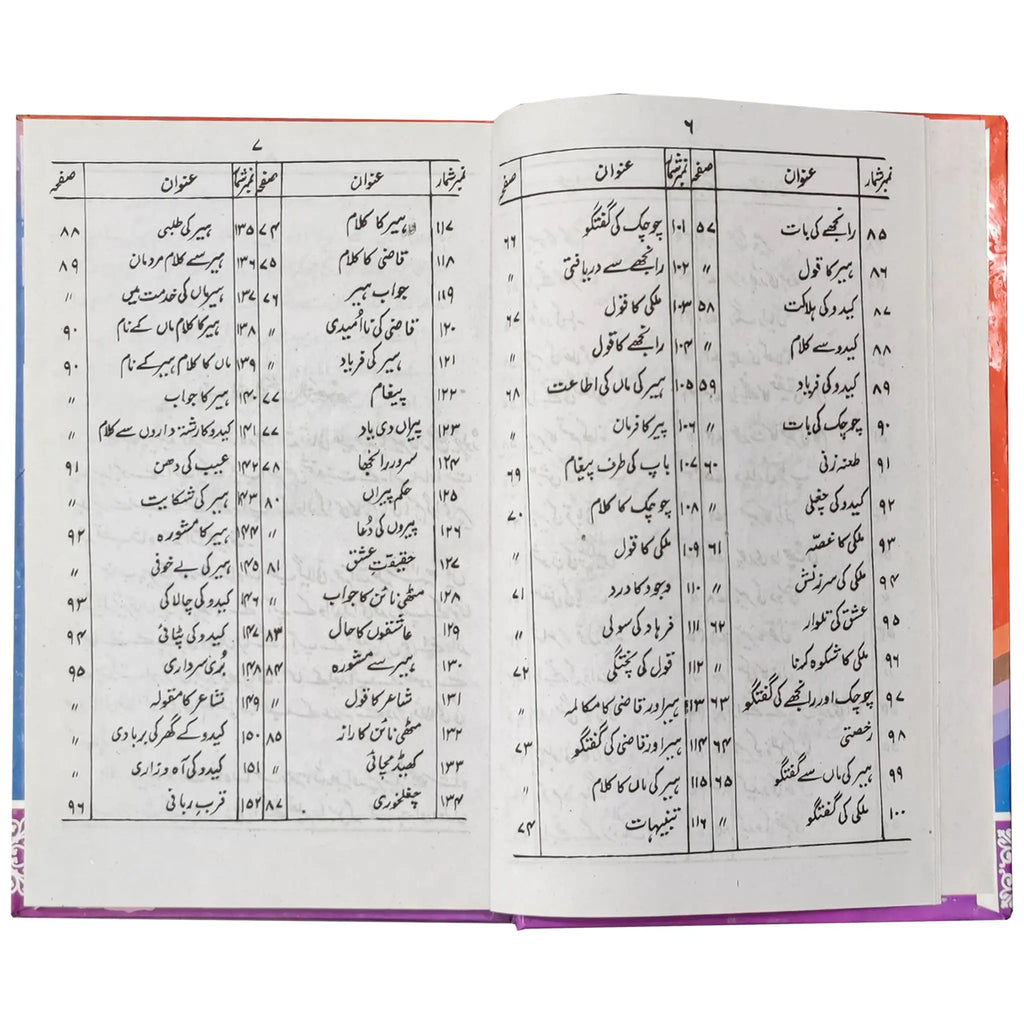 ۶
نمبر شمار عنوان صفحہ
۸۵ رانجھے کی بات ۵۷
۸۶ ہیر کا قول ״
۸۷ کیدو کی ہلاکت ۵۸
۸۸ کیدو سے کلام ״
۸۹ کیدو کی فریاد ۵۹
۹۰ چوچک کی بات ״
۹۱ طعنہ زنی ۶۰
۹۲ کیدو کی چغلی ״
۹۳ ملکی کا غصّہ ۶۱
۹۴ ملکی کی سرزنش ״
۹۵ عشق کی تلوار ۶۲
۹۶ ملکی کا شکوہ کرنا ״
۹۷ چوچک اور رانجھے کی گفتگو ۶۳
۹۸ رخصتی ۶۴
۹۹ ہیر کی ماں سے گفتگو ۶۵
۱۰۰ ملکی کی گفتگو ״
نمبر شمار عنوان صفحہ
۱۰۱ چوچک کی گفتگو ۶۶
۱۰۲ رانجھے سے دریافتی ״
۱۰۳ ملکی کا قول ۶۷
۱۰۴ رانجھے کا قول ״
۱۰۵ ہیر کی ماں کی اطاعت ۶۸
۱۰۶ پیر کا فرمان ״
۱۰۷ باپ کی طرف پیغام ۶۹
۱۰۸ چوچک کا کلام ۷۰
۱۰۹ ملکی کا قول ״
۱۱۰ وجود کا درد ۷۱
۱۱۱ فرہاد کی سولی ״
۱۱۲ قول کی پختگی ۷۲
۱۱۳ ہیر اور قاضی کا مکالمہ ״
۱۱۴ ہیر اور قاضی کی گفتگو ۷۳
۱۱۵ ہیر کی ماں کا کلام ״
۱۱۶ تنبیہات ۷۴
۷
نمبر شمار عنوان صفحہ
۱۱۷ ہیر کا کلام ۷۴
۱۱۸ قاضی کا کلام ۷۵
۱۱۹ جواب ہیر ۷۶
۱۲۰ قاضی کی نااُمیدی ״
۱۲۱ ہیر کی فریاد ״
۱۲۲ پیغام ۷۷
۱۲۳ پیراں دی یاد ۷۷
۱۲۴ سرور رانجھا ۷۸
۱۲۵ حکم پیراں ۸۰
۱۲۶ پیروں کی دُعا ״
۱۲۷ حقیقتِ عشق ۸۱
۱۲۸ مٹھی نائن کا جواب ״
۱۲۹ عاشقوں کا حال ۸۳
۱۳۰ ہیر سے مشورہ ۸۴
۱۳۱ شاعر کا قول ״
۱۳۲ مٹھی نائن کا راز ۸۵
۱۳۳ کھیڈ مچائی ״
۱۳۴ چغلخوری ۸۷
نمبر شمار عنوان صفحہ
۱۳۵ ہیر کی طلبی ۸۸
۱۳۶ ہیر سے کلام مردمان ۸۹
۱۳۷ ہیر ماں کی خدمت میں ״
۱۳۸ ہیر کا کلام ماں کے نام ۹۰
۱۳۹ ماں کا کلام ہیر کے نام ۹۰
۱۴۰ ہیر کا جواب ״
۱۴۱ کیدو کا رشتہ داروں سے کلام ״
۱۴۲ عیب کی دھن ۹۱
۱۴۳ ہیر کی شکایت ״
۱۴۴ ہیر کا مشورہ ۹۲
۱۴۵ ہیر کی بے خوفی ״
۱۴۶ کیدو کی چالاکی ۹۳
۱۴۷ کیدو کی پٹائی ۹۴
۱۴۸ بُری سرداری ۹۵
۱۴۹ شاعر کا مقولہ ״
۱۵۰ کیدو کے گھر کی بربادی ״
۱۵۱ کیدو کی آہ و زاری ״
۱۵۲ قرب ربانی ۹۶